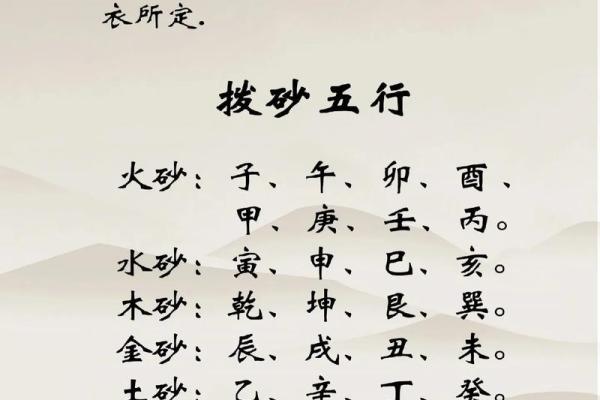 衣所定.
拨砂五行
火砂：子、午、卯、酉、
甲、庚、壬、丙。
水砂：寅、申、巳、亥。
木砂：乾、坤、艮、巽。
金砂：辰、戌、丑、未。
土砂：乙、辛、丁、癸。